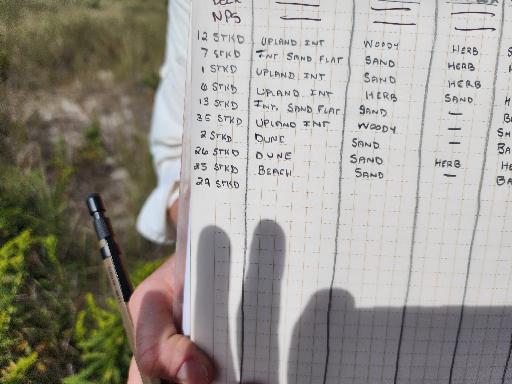 NPS
12 STKD UPLAND INT WOODY HERB
7 STKD INT. SAND FLAT SAND HERB
1 STKD UPLAND INT SAND HERB
6 STKD UPLAND INT HERB SAND
13 STKD INT. SAND FLAT SAND —
35 STKD UPLAND INT WOODY —
2 STKD DUNE SAND —
26 STKD DUNE SAND HERB
STKD BEACH SAND —
29 STKD